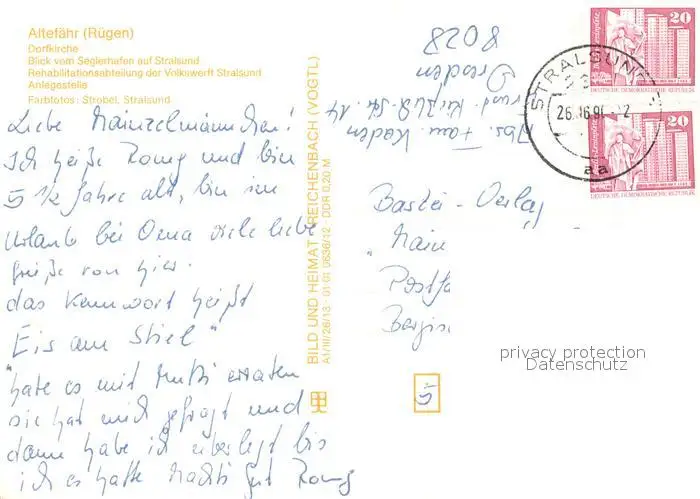 Altefähr (Rügen)
Dorfkirche
Blick vom Seglerhafen auf Stralsund
Rehabilitationsabteilung der Volkswerft Stralsund
Anlegestelle
Farbfotos: Strobel, Stralsund
Liebe Mainzelmännchen!
Ich heiße Romy und bin
5 1/2 Jahre alt, bin im
Urlaub bei Oma viele liebe
Grüße von hier.
das Kennwort heißt
"Eis am Stiel"
habe es mit Mutti erraten
sie hat mich gefragt und
dann habe ich überlegt bis
ich es hatte Machts gut Romy
BILD UND HEIMAT REICHENBACH (VOGTL)
A1/III/26/13 01 01 0636/12 DDR 0,20 M
Abs. Fam. Kaden
14
Dresden
8028
STRALSUND
aa
20
DEUTSCHE DEMOKRATISCHE REPUBLIK
20
DEUTSCHE DEMOKRATISCHE REPUBLIK
Bastei-Verlag
Postfa
5
privacy protection
Datenschutz